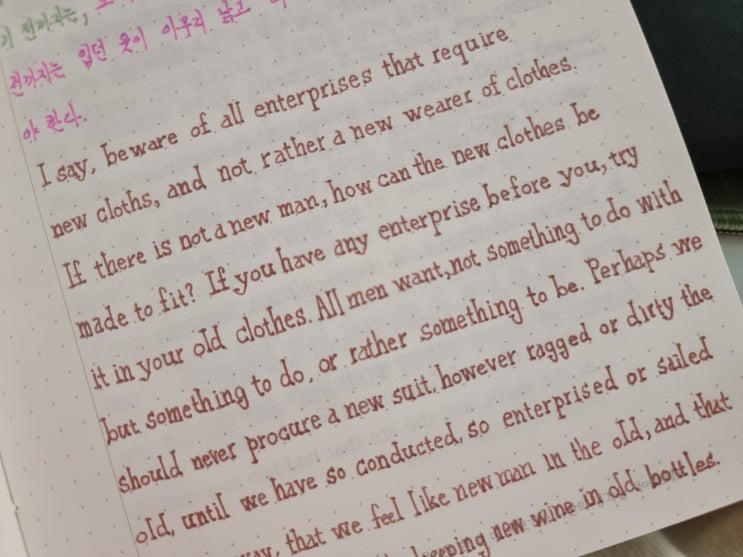 기 전까지는,
전까지는 입던 옷이 아무리 낡고
야 한다.
I say, beware of all enterprises that require
new cloths, and not rather a new wearer of clothes.
If there is not a new man, how can the new clothes be
made to fit? If you have any enterprise before you, try
it in your old clothes. All men want, not something to do with
but something to do, or rather something to be. Perhaps we
should never procure a new suit, however ragged or dirty the
old, until we have so conducted, so enterprised or sailed
way, that we feel like new man in the old, and that
keeping new wine in old bottles.